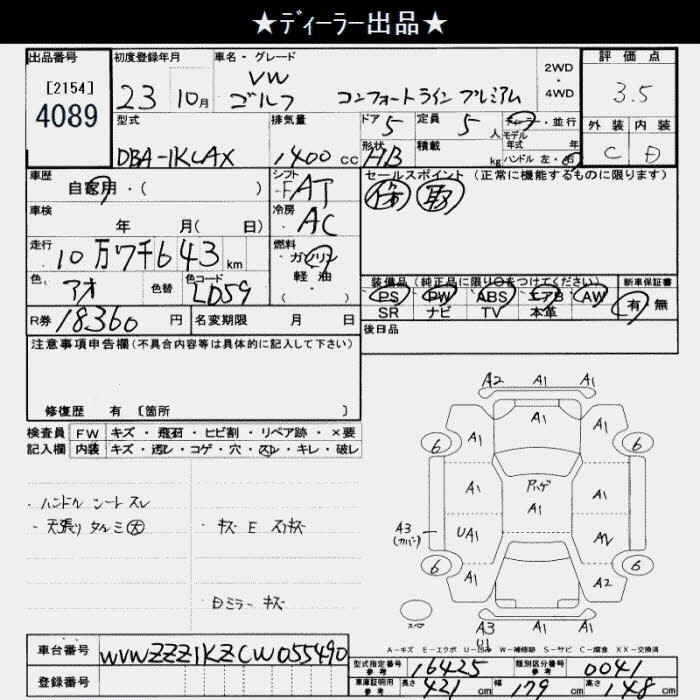 ★ディーラー出品★
出品番号 初度登録年月 車名・グレード 評価点
[2154]
4089
23 10月
VW
ゴルフ コンフォートライン プレミアム
2WD・4WD
3.5
型式 排気量 ドア 定員 外装 内装
DBA-1KCAX 1400 cc 5 5 人
ディーラー・並行
モデル年式 年
形状 積載
HB kg ハンドル 左・右
C D
車歴 自家用・( ) シフト セールスポイント(正常に機能するものに限ります)
-FAT 保 取
車検 年 月( 日) 冷房 AC
走行 10万7千643 km 燃料 ガソリン・軽油・( )
色 アオ 色替 色コード LD59
装備品(純正品に限り○をつけてください) 新車保証書
PS PW ABS エアB AW 有・無
SR ナビ TV 本革
R券 18360 円 名変期限 月 日 後日品
注意事項申告欄(不具合内容等は具体的に記入して下さい)
修復歴 有 〔箇所 〕
検査員 FW キズ・飛石・ヒビ割・リペア跡・×要
記入欄 内装 キズ・汚レ・コゲ・穴・スレ・キレ・破レ
・ハンドル シート スレ
・天張り タルミ 大 ・キズ E スリキズ
日ミラー キズ
A2 A1 A1
A1
6 A1 A1 6
A1 Aハゲ A1
A1
A3
(カバー)
UA1 A2
6 A1 A1 A2 6
スペア
A3 A1 A1
U1
A-キズ E-エクボ U-凹み W-補修跡 S-サビ C-腐食 XX-交換済
車台番号 WVWZZZ1KZCW055490
型式指定番号 参考 16425 類別区分番号 参考 0041
登録番号
車庫証明用 参考 長さ 421 cm 幅 179 cm 高さ 148 cm